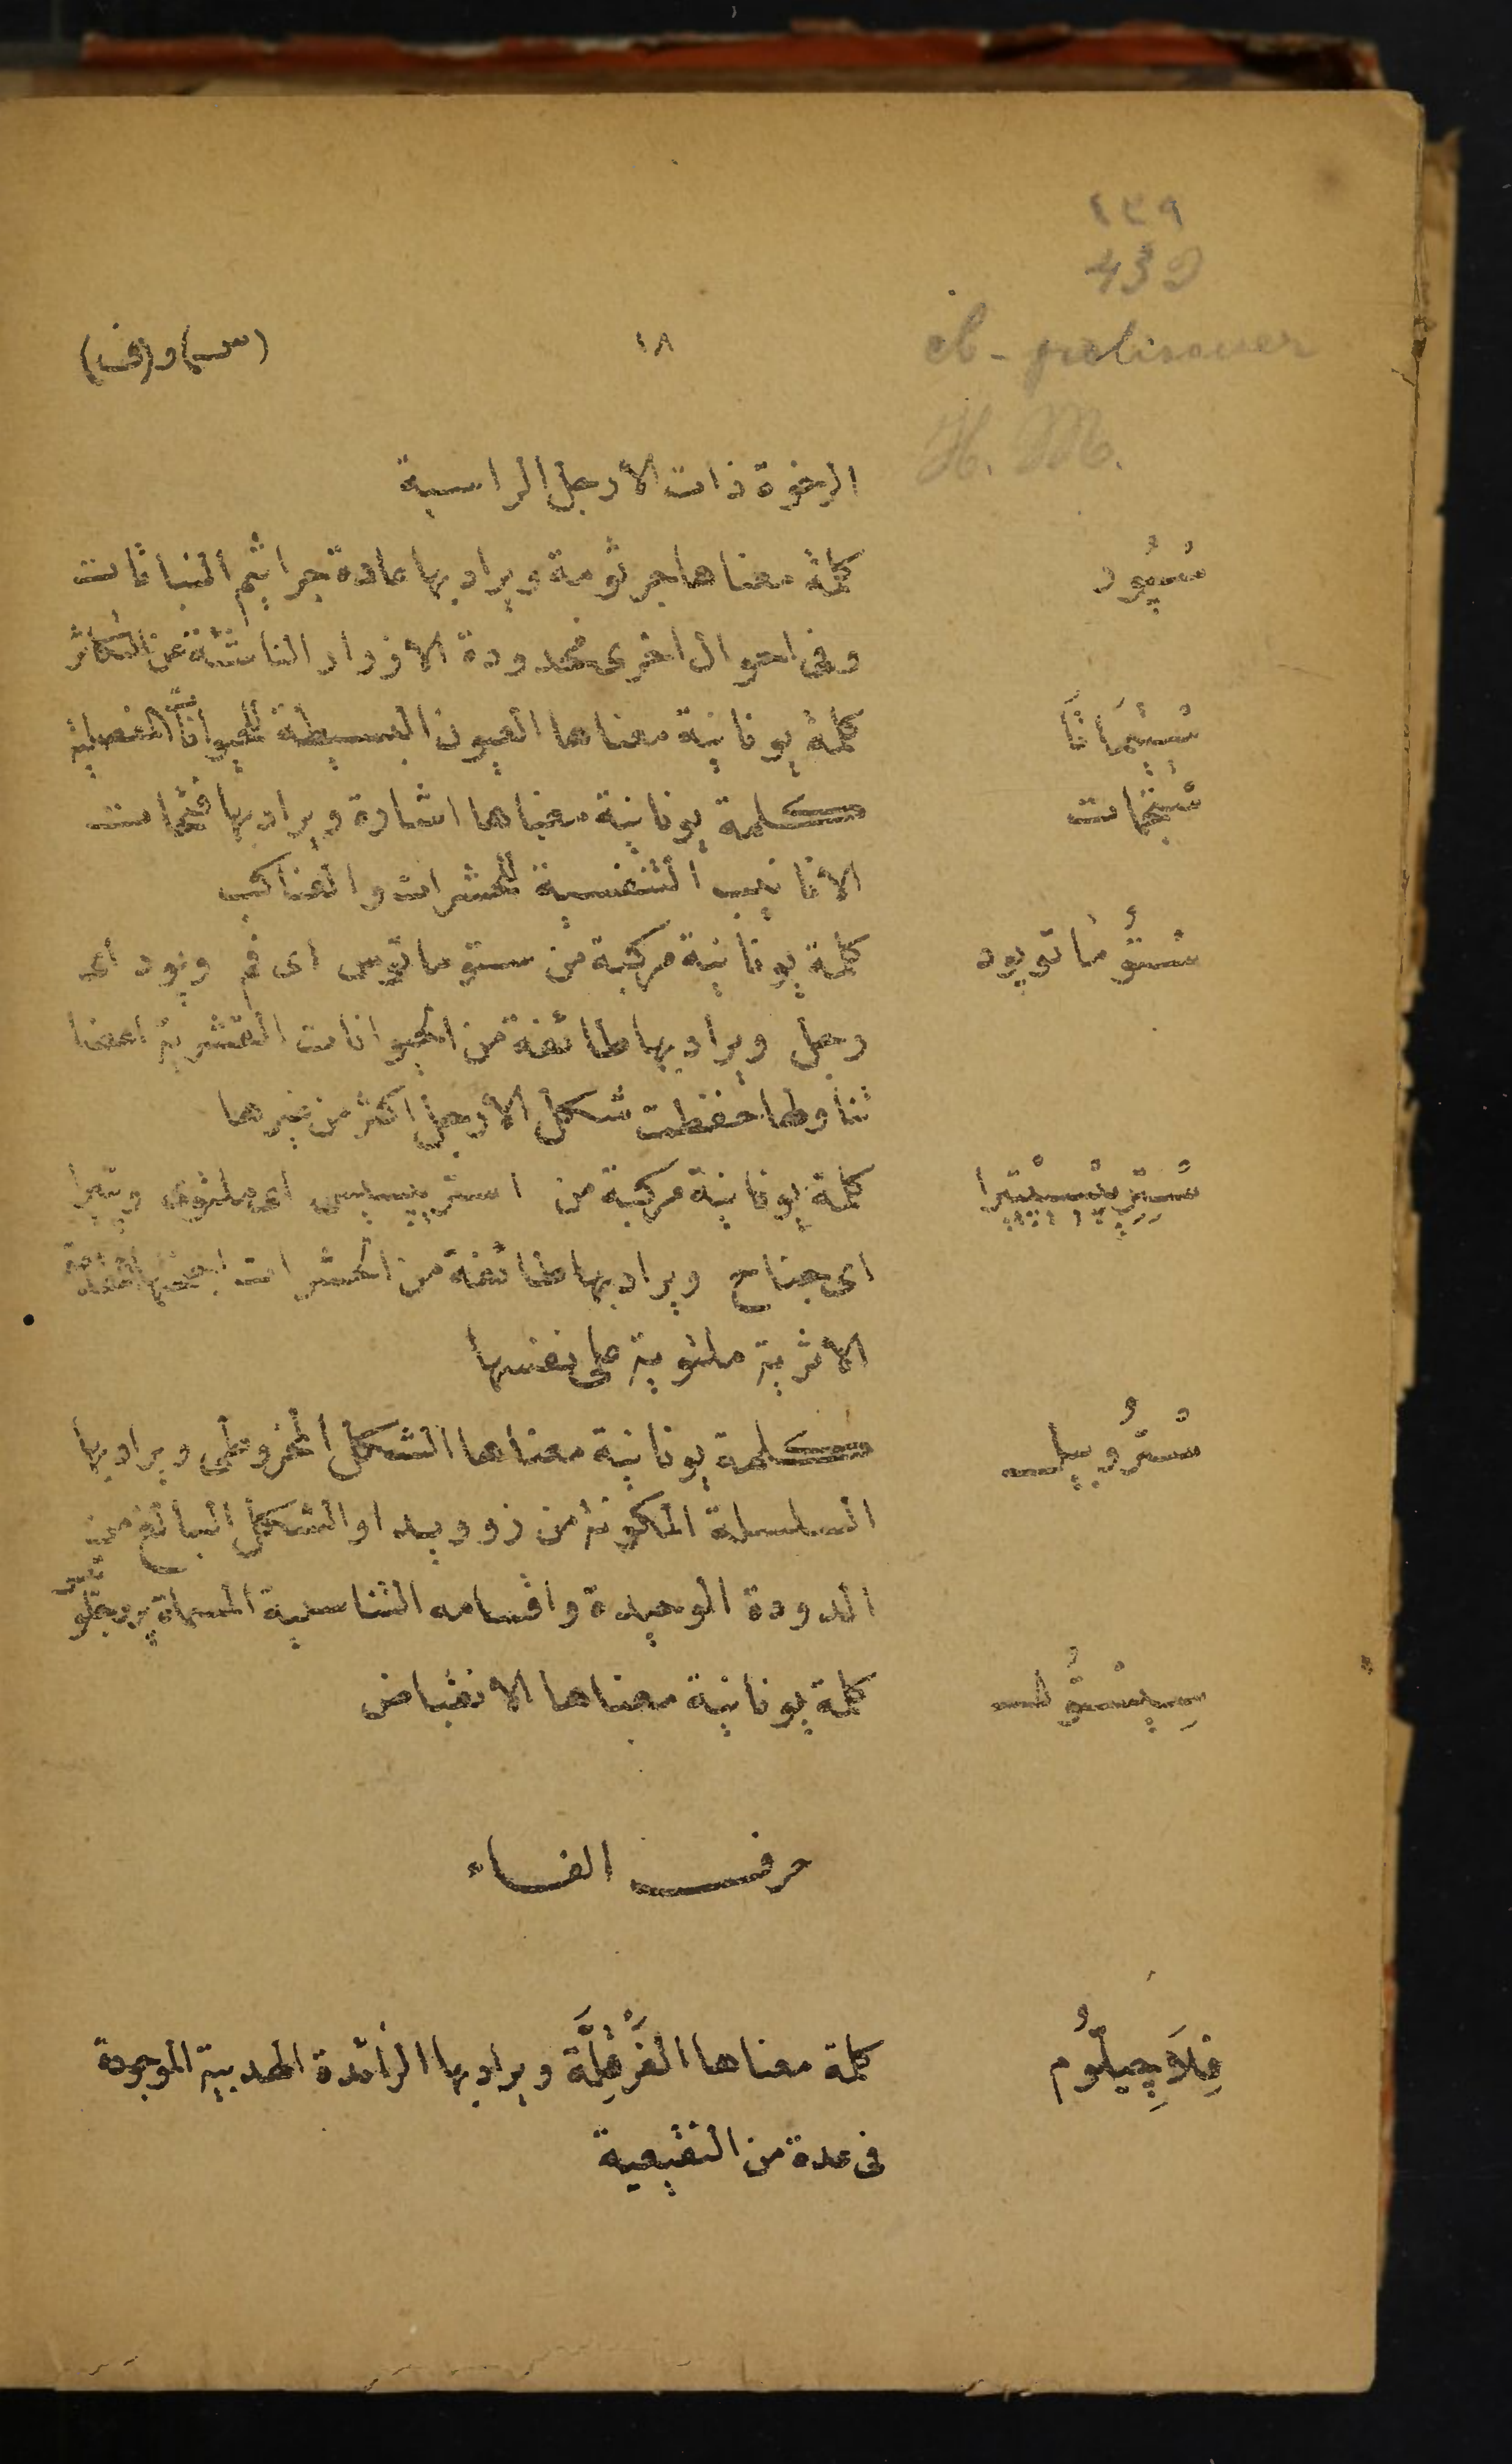 ٤٣٩
439
H. M.
(س) و (ف)
١٨
الرخوة ذات الأرجل الراسية
سْپُود كلمة معناها جرثومة ويراد بها عادة جراثيم النباتات
وفى احوال اخرى محدودة الازرار الناتئة عن التكاثر
سْتِيمَاتَا كلمة يونانية معناها العيون البسيطة للحيوانات المفصلية
سْتِجْمَات كلمة يونانية معناها اشارة ويراد بها فتحات
الانابيب التنفسية للحشرات والعناكب
سْتُومَاتوپود كلمة يونانية مركبة من ستوماتوس اى فم وپود اى
رجل ويراد بها طائفة من الحيوانات القشرية اعضا
تناولها حفظت شكل الارجل اكثر من غيرها
سْتِرِپْسِپْتِرا كلمة يونانية مركبة من استرپسيس اى ملتوى وپترا
اى جناح ويراد بها طائفة من الحشرات اجنحتها
الاثرية ملتوية على نفسها
سْتْرُوبيل كلمة يونانية معناها الشكل المخروطى ويراد بها
السلسلة المكونة من زوويد او الشكل البالغ من
الدودة الوحيدة واقسامه التناسلية المسماة پروجلوتيس
سِيسْتُول كلمة يونانية معناها الانقباض
حرف الفاء
فِلَاجِيلُّوم كلمة معناها الفَرْقِلَّة ويراد بها الزائدة الهدبية الموجودة
فى عدة من النقيعية